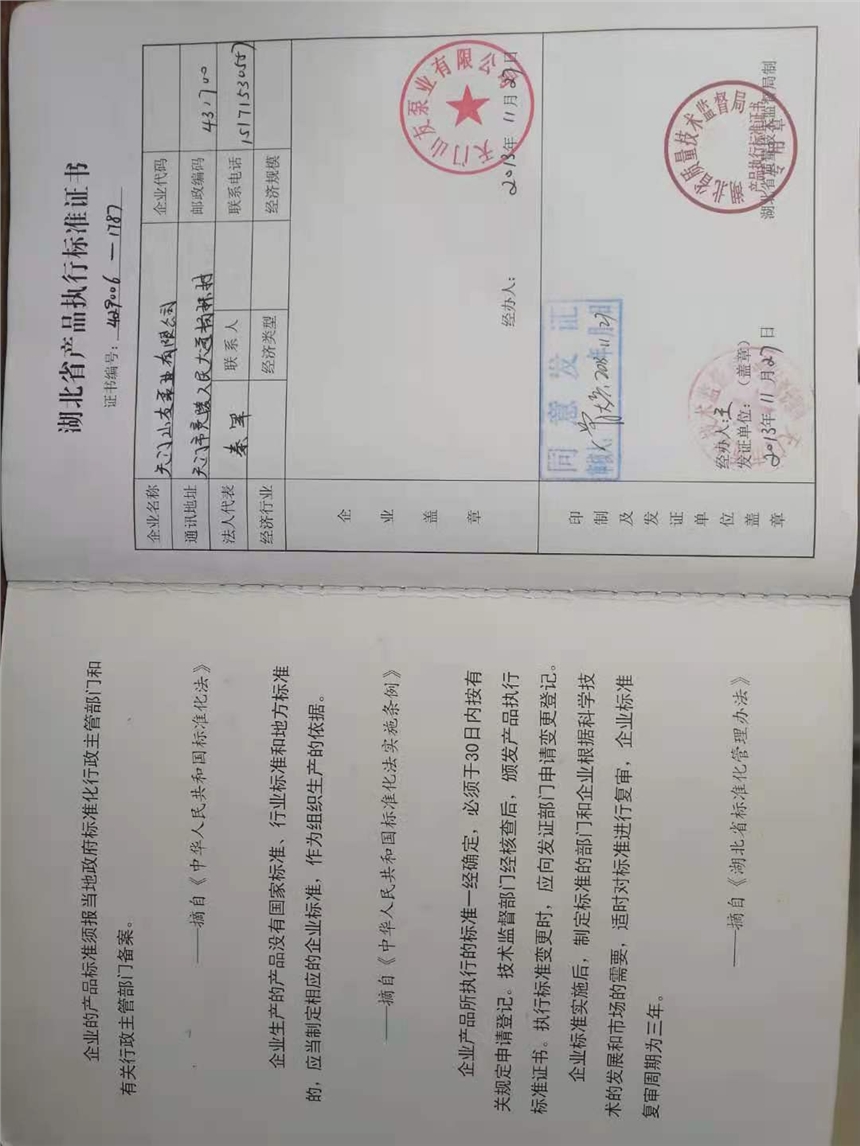 企业的产品标准须报当地政府标准化行政主管部门和
有关行政主管部门备案。
——摘自《中华人民共和国标准化法》
企业生产的产品没有国家标准、行业标准和地方标准
的，应当制定相应的企业标准，作为组织生产的依据。
——摘自《中华人民共和国标准化法实施条例》
企业产品所执行的标准一经确定，必须于30日内按有
关规定申请登记。技术监督部门经核查后，颁发产品执行
标准证书。执行标准变更时，应向发证部门申请变更登记。
企业标准实施后，制定标准的部门和企业根据科学技
术的发展和市场的需要，适时对标准进行复审，企业标准
复审周期为三年。
——摘自《湖北省标准化管理办法》
湖北省产品执行标准证书
证书编号：429006—1787
企业名称 天门山友泵业有限公司 企业代码
通讯地址 天门市竟陵人民大道杨林村 邮政编码 431700
法人代表 秦军 联系人 联系电话 15171530557
经济行业 经济类型 经济规模
企业盖章
天门山友泵业有限公司
经办人：
2013年11月27日
印制及发证单位盖章
同意发证
2013年11月27日
湖北省质量技术监督局
产品执行标准证书
专用章
湖北省质量技术监督局制
经办人：王
发证单位：（盖章）
2013年11月27日